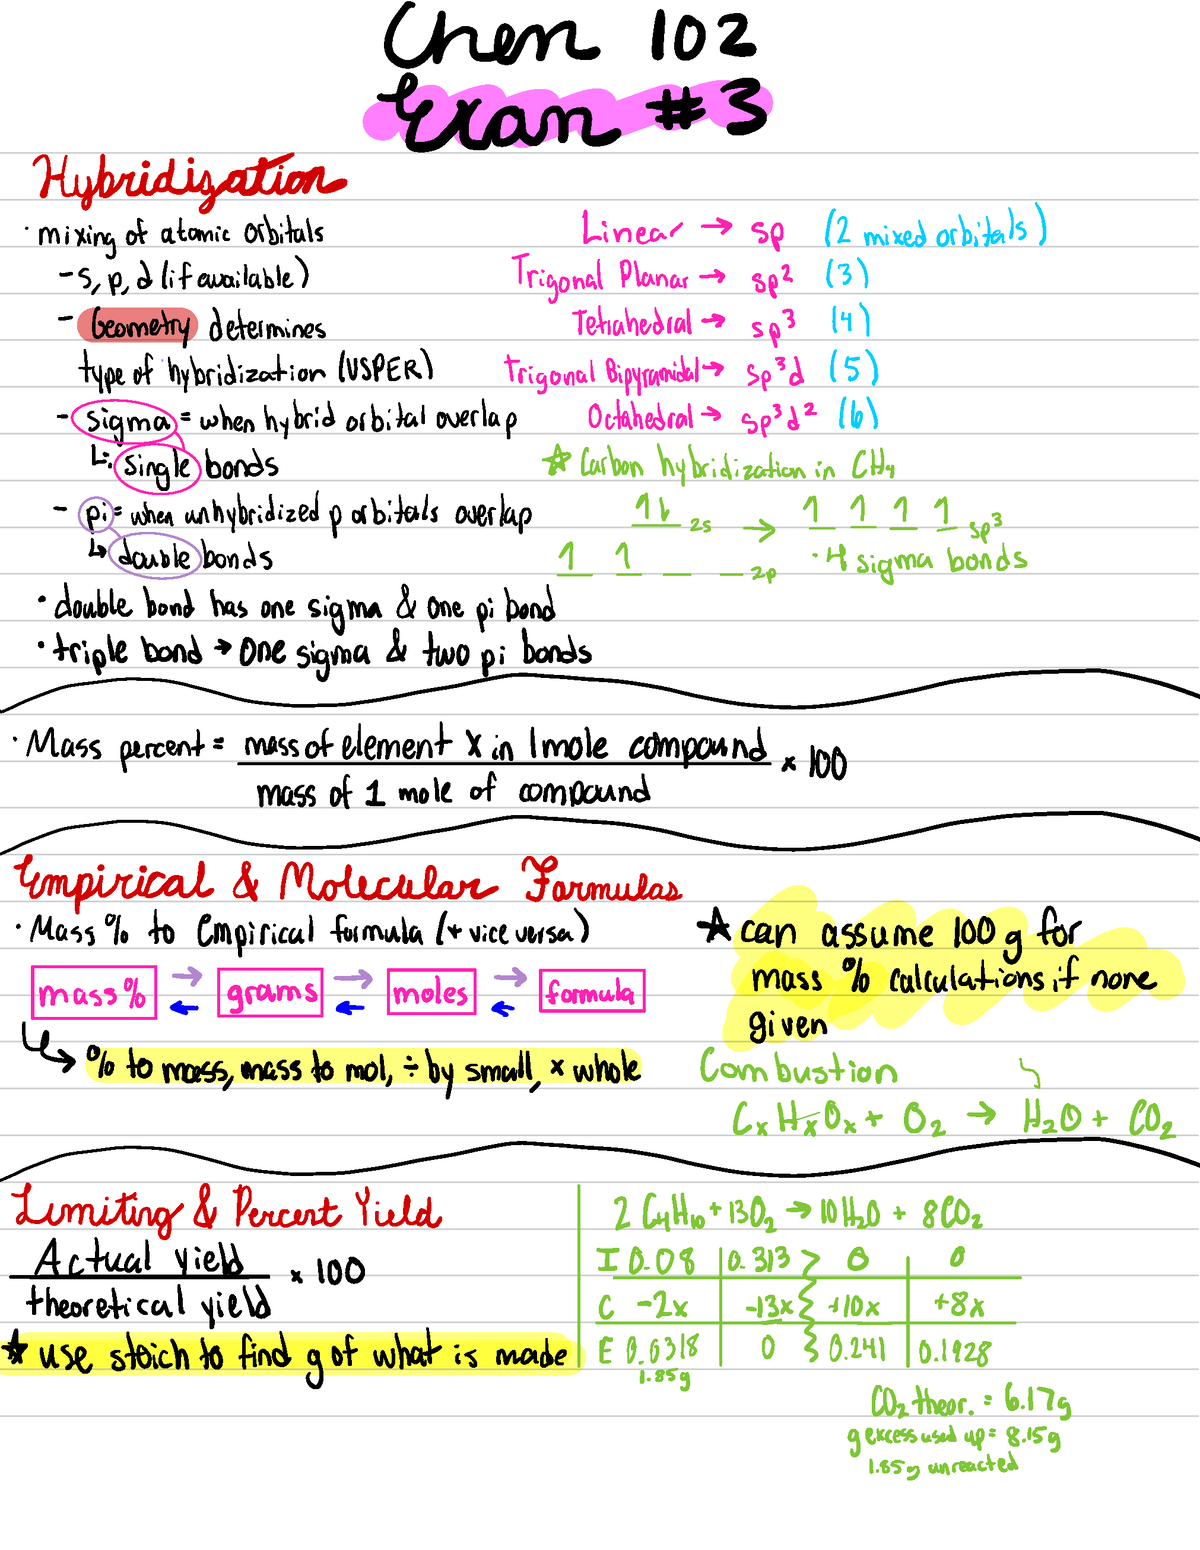 Chem 102
Exam #3
Hybridization
· mixing of atomic orbitals
- s, p, d (if available)
- Geometry determines
type of hybridization (VSPER)
- sigma = when hybrid orbital overlap
↳: single bonds
- pi = when unhybridized p orbitals overlap
↳ double bonds
• double bond has one sigma & one pi bond
• triple bond → one sigma & two pi bonds
Linear → sp (2 mixed orbitals)
Trigonal Planar → sp² (3)
Tetrahedral → sp³ (4)
Trigonal Bipyramidal → sp³d (5)
Octahedral → sp³d² (6)
☆ Carbon hybridization in CH₄
1l 2s → 1 1 1 1 sp³
1 1 _ _ 2p · 4 sigma bonds
· Mass percent = mass of element X in 1 mole compound × 100
mass of 1 mole of compound
Empirical & Molecular Formulas
· Mass % to Empirical formula (+ vice versa)
mass % → grams → moles → formula
← ← ←
↳ % to mass, mass to mol, ÷ by small, × whole
☆ can assume 100 g for
mass % calculations if none
given
Combustion
CₓHₓOₓ + O₂ → H₂O + CO₂
Limiting & Percent Yield
Actual yield × 100
theoretical yield
★ use stoich to find g of what is made
2 C₄H₁₀ + 13O₂ → 10 H₂O + 8CO₂
I 0.08 0.313 0 0
C -2x -13x +10x +8x
E 0.0318 0 0.241 0.1928
1.85g
CO₂ theor. = 6.17g
g excess used up = 8.15g
1.85g unreacted